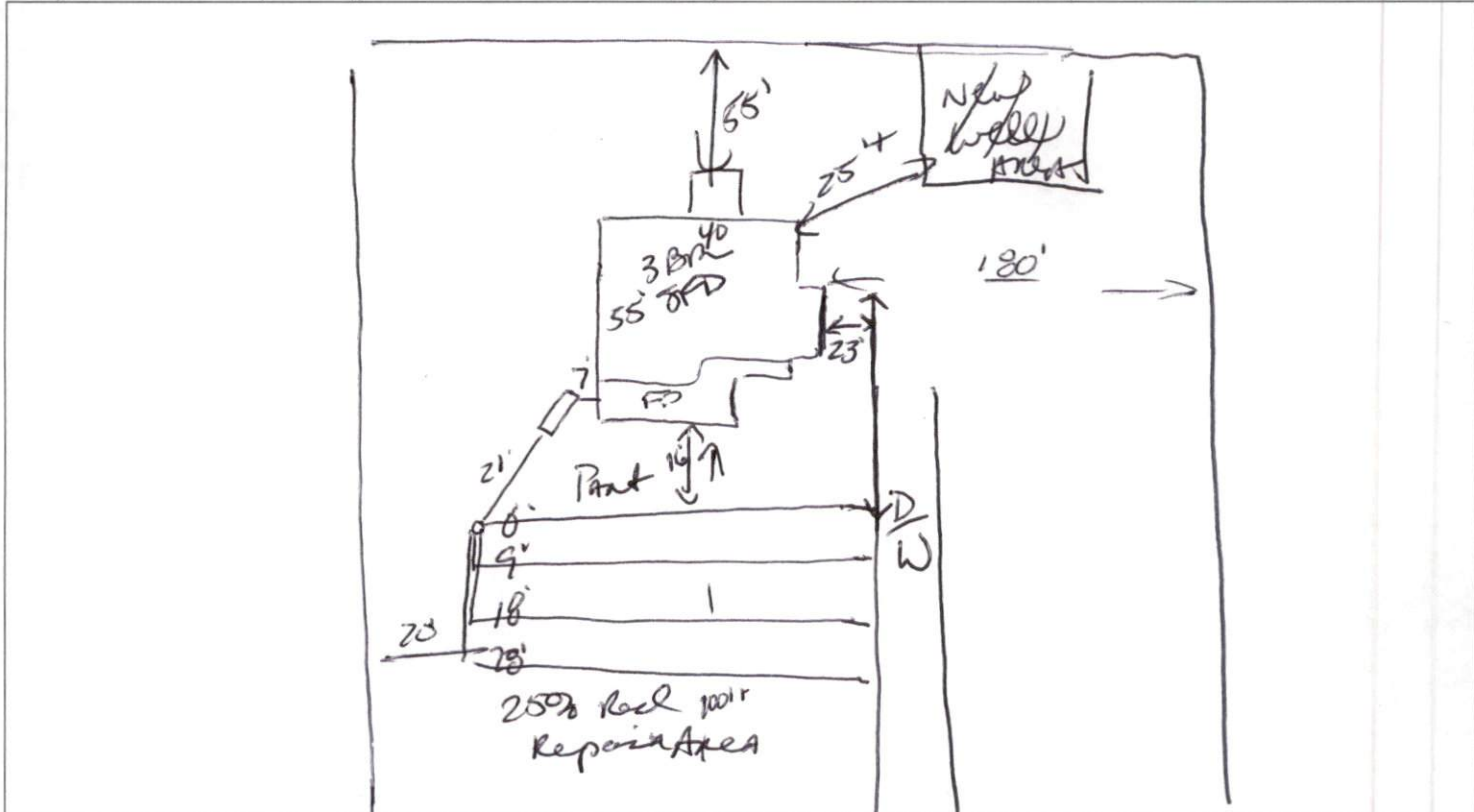 55'
New
Well
Area
25'+
40
3 BR
55' SFD
180'
23'
7'
FP
21'
16'
D/W
0'
9'
18'
28'
20'
25% Red 100'+
Repair Area